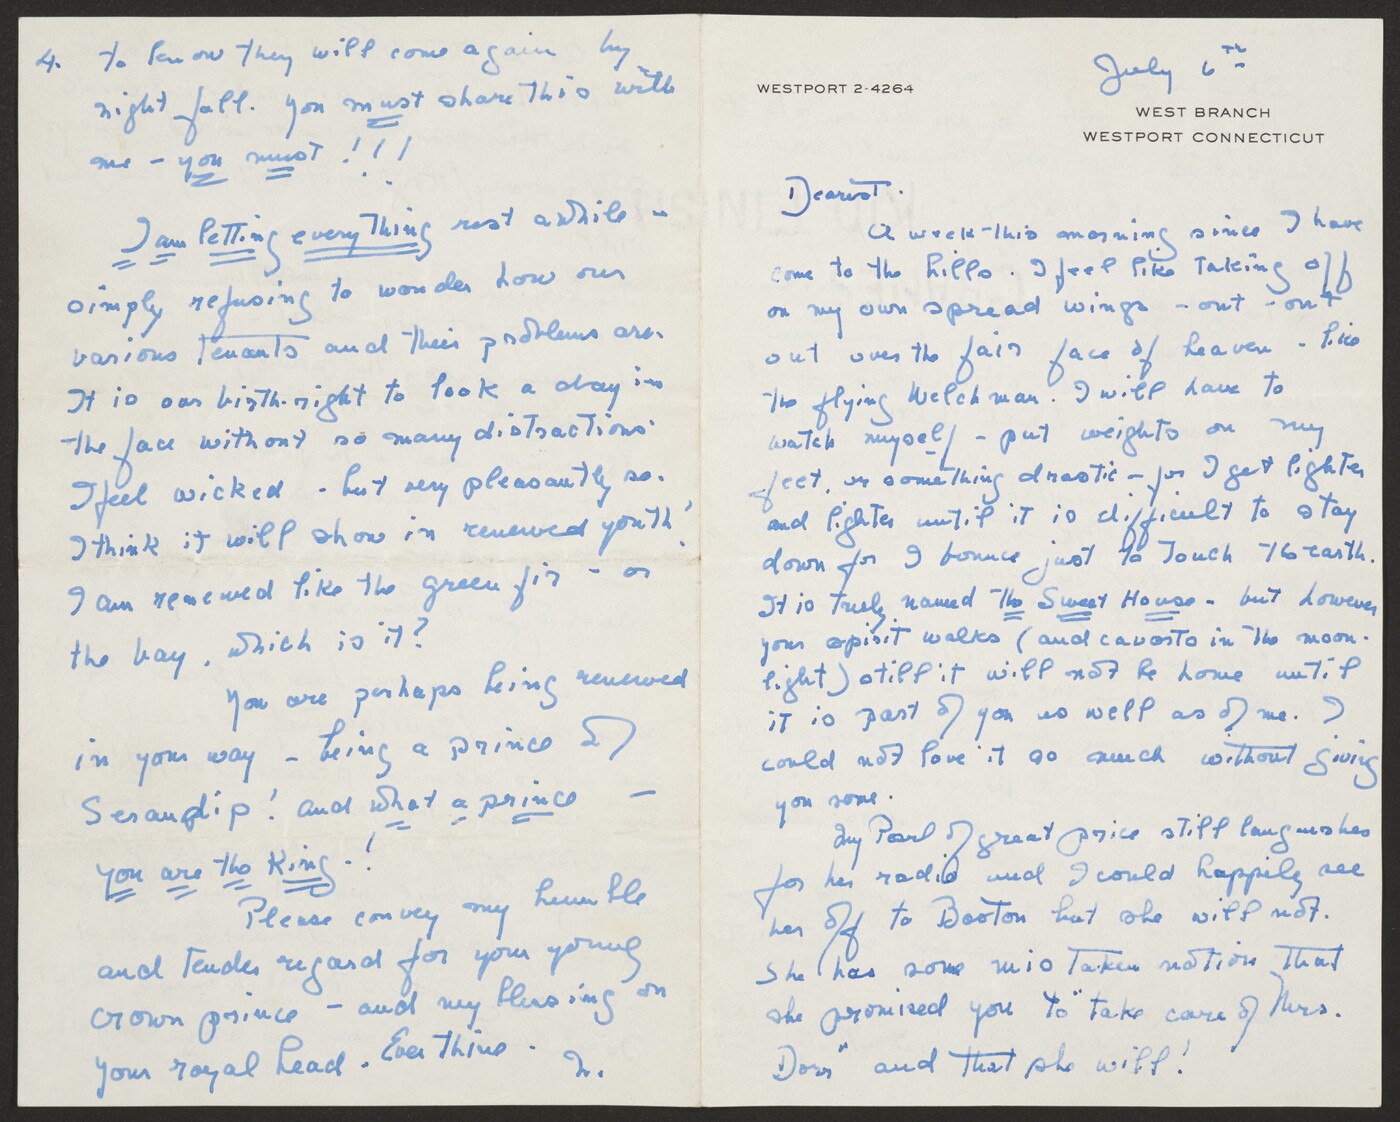 4. to know they will come again by
night fall. You must share this with
me – you must !!!
I am letting everything rest awhile –
simply refusing to wonder how our
various Tenants and their problems are.
It is our birth-right to look a day in
the face without so many distractions.
I feel wicked – but very pleasantly so.
I think it will show in renewed youth!
I am renewed like the green fir – or
the bay, which is it?
You are perhaps being renewed
in your way – being a prince of
Serandip! and what a prince –
you are the King –!
Please convey my humble
and tender regard for your young
crown prince – and my blessing on
your royal head. Ever Thine.
WESTPORT 2-4264
July 6th
WEST BRANCH
WESTPORT CONNECTICUT
Dearest.
A week this morning since I have
come to the hills. I feel like Taking off
on my own spread wings – out – out
out over the fair face of heaven – like
the flying Welchman. I will have to
watch myself – put weights on my
feet, or something drastic – for I get lighter
and lighter until it is difficult to stay
down for I bounce just to Touch the earth.
It is truly named the Sweet House – but however
your spirit walks (and cavorts in the moon-
light) still it will not be home until
it is part of you as well as of me. I
could not love it so much without giving
you some.
My Pearl of great price still languishes
for her radio and I could happily see
her off to Boston but she will not.
She has some mis Taken notion that
she promised you to "take care of Mrs.
Dorr" and that she will!